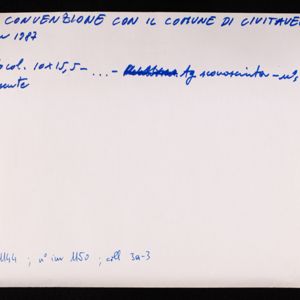 CONVENZIONE CON IL COMUNE DI CIVITAVE
1987
col. 10x15,5 - ... - Ag sconosciuta - n°
1144 ; n° inv 1150 ; coll 3a-3